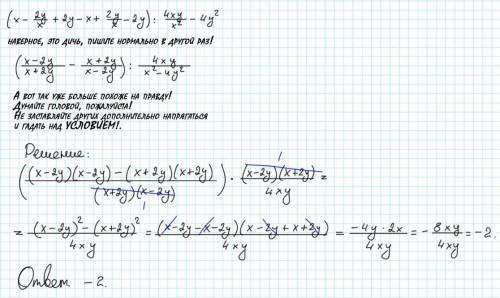 (x - 2y/x + 2y - x + 2y/x - 2y) : 4xy/x² - 4y²
НАВЕРНОЕ, ЭТО ДИЧЬ, ПИШИТЕ НОРМАЛЬНО В ДРУГОЙ РАЗ!
((x-2y)/(x+2y) - (x+2y)/(x-2y)) : 4xy/(x²-4y²)
А ВОТ ТАК УЖЕ БОЛЬШЕ ПОХОЖЕ НА ПРАВДУ!
ДУМАЙТЕ ГОЛОВОЙ, ПОЖАЛУЙСТА!
НЕ ЗАСТАВЛЯЙТЕ ДРУГИХ ДОПОЛНИТЕЛЬНО НАПРЯГАТЬСЯ
И ГАДАТЬ НАД УСЛОВИЕМ!.
Решение:
(((x-2y)(x-2y) - (x+2y)(x+2y))/((x+2y)(x-2y))) · (x-2y)(x+2y)/4xy =
= ((x-2y)² - (x+2y)²)/4xy = (x-2y-x-2y)(x-2y+x+2y)/4xy = -4y·2x/4xy = -8xy/4xy = -2.
Ответ -2.